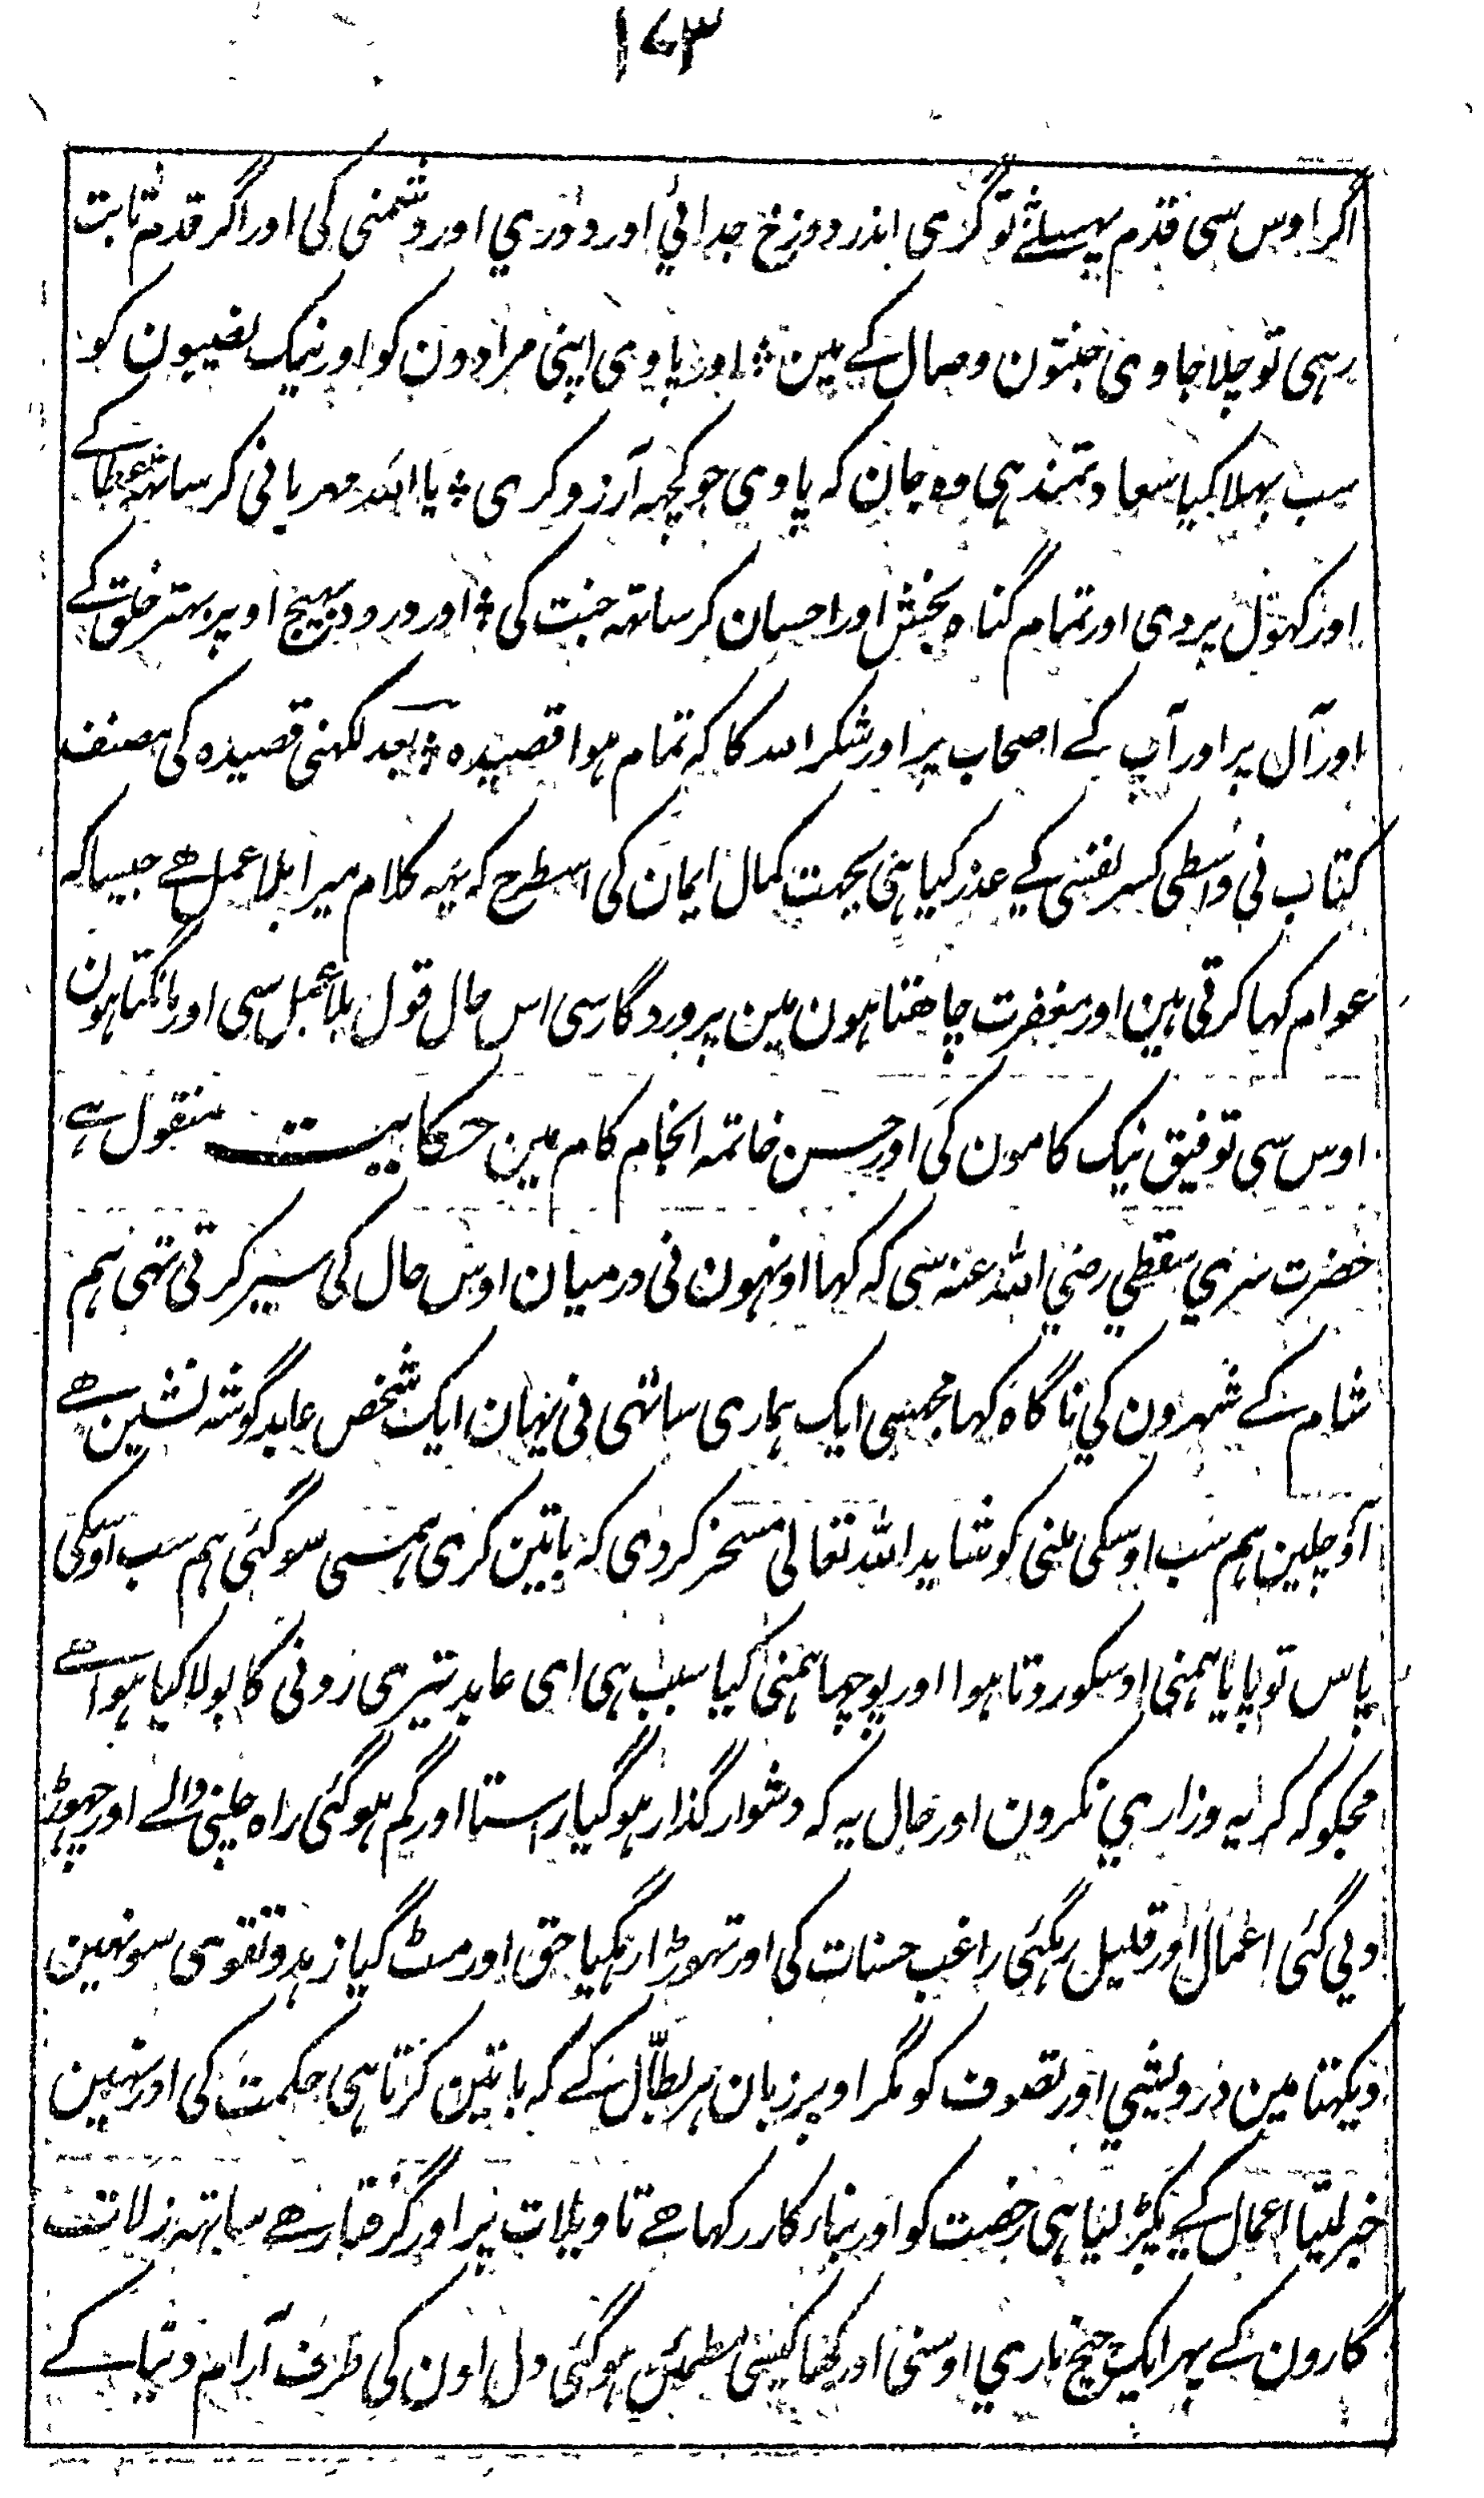 ۱۷۳
اگر اوس سی قدم پہسلے تو گری اندر دوزخ جدائي اور دوري اور دشمنی کی اور اگر قدم ثابت
رہی تو چلا جاوی جنتون وصال کے مین ؞ اور پاوی اپنی مرادون کو اور نیک نصیبون کو
سب بہلا کیا سعادتمند ہی وہ جان کہ پاوی جو کچہہ آرزو کری ؞ یا اللہ مہربانی کر ساتھہ عطا کے
اور کہول پردی اور تمام گناہ بخش اور احسان کر ساتہ جنت کی ؞ اور درود بہیج اوپر بہتر خلق کے
اور آل پر اور آپ کے اصحاب پر اور شکر اللہ کا کہ تمام ہوا قصیدہ ؞ بعد لکہنی قصیدہ کی مصنف
کتاب نی واسطی کسر نفسی کے عذر کیا ہی بجہت کمال ایمان کی اسطرح کہ یہہ کلام میرا بلا عمل ہے جیسا کہ
عوام کہا کرتی ہین اور مغفرت چاھتا ہون مین پروردگار سی اس حال قول بلا عمل سی اور مانگتا ہون
اوس سی توفیق نیک کامون کی اور حسن خاتمہ انجام کام مین حکایت منقول ہے
حضرت سري سقطي رضي اللہ عنہ سی کہ کہا اونہون نی درمیان اوس حال کی سیر کرتی تہی ہم
شام کے شہرون کي ناگاہ کہا مجہسی ایک ہماری ساتہی نی یہان ایک شخص عابد گوشہ نشین ہے
آؤ چلین ہم سب اوسکی ملنی کو شاید اللہ تعالی مسخر کردی کہ باتین کری ہمسی سو گئی ہم سب اوسکی
پاس تو پایا ہمنی اوسکو روتا ہوا اور پوچہا ہمنی کیا سبب ہی ای عابد تیری رونی کا بولا کیا ہوا ہے
مجکو کہ گریہ وزاري نکرون اور حال یہ کہ دشوار گذار ہو گیا رستا اور گم ہو گئی راہ چلنی والے اور چہوڑ
دي گئی اعمال اور قلیل رہگئی راغب حسنات کی اور تہوڑا رہگیا حق اور مٹ گیا زہد و تقوی سو نہین
دیکہتا مین درویشي اور تصوف کو مگر اوپر زبان ہر بطّال کے کہ باتین کرتا ہی حکمت کی اور نہین
خبر لیتا اعمال کے پکڑ لیا ہی رخصت کو اور بناء کار رکہا ہے تاویلات پر اور گرفتار ہے ساتہ زلات
کارون کے پہر ایک چیخ ماري اوسنی اور کہا کیسی مطمئن ہو گئی دل اون کی طرف آرام دنیا کے